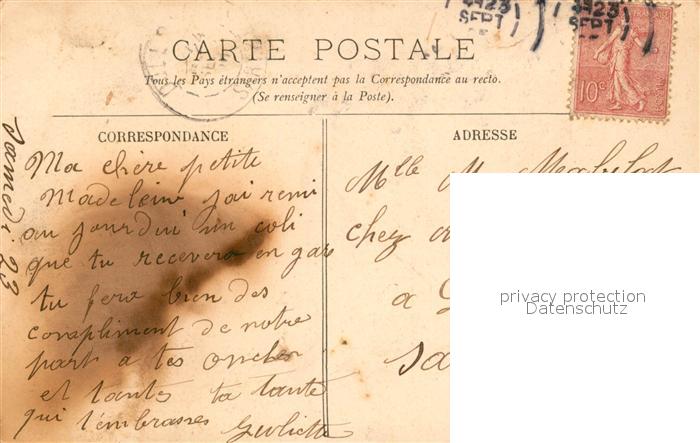 23
SEPT
23
SEPT
CARTE POSTALE
Tous les Pays étrangers n'acceptent pas la Correspondance au recto.
(Se renseigner à la Poste).
10c
CORRESPONDANCE
Samedi 23
Ma chère petite
Madeleine j'ai remi
au jourdui un coli
que tu recevera en gar
tu fera bien des
compliment de notre
part a tes oncles
et tantes ta tante
qui t'embrasses Juliette
ADRESSE
Mlle M.
chez
a
privacy protection
Datenschutz